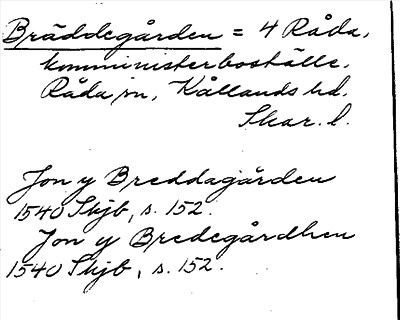 Bräddegården = 4 Råda,
komministerboställe.
Råda sn, Kållands hd.
Skar. l.
Jon y Breddagården
1540 Skjb, s. 152.
Jon y Bredegårdhen
1540 Skjb, s. 152.